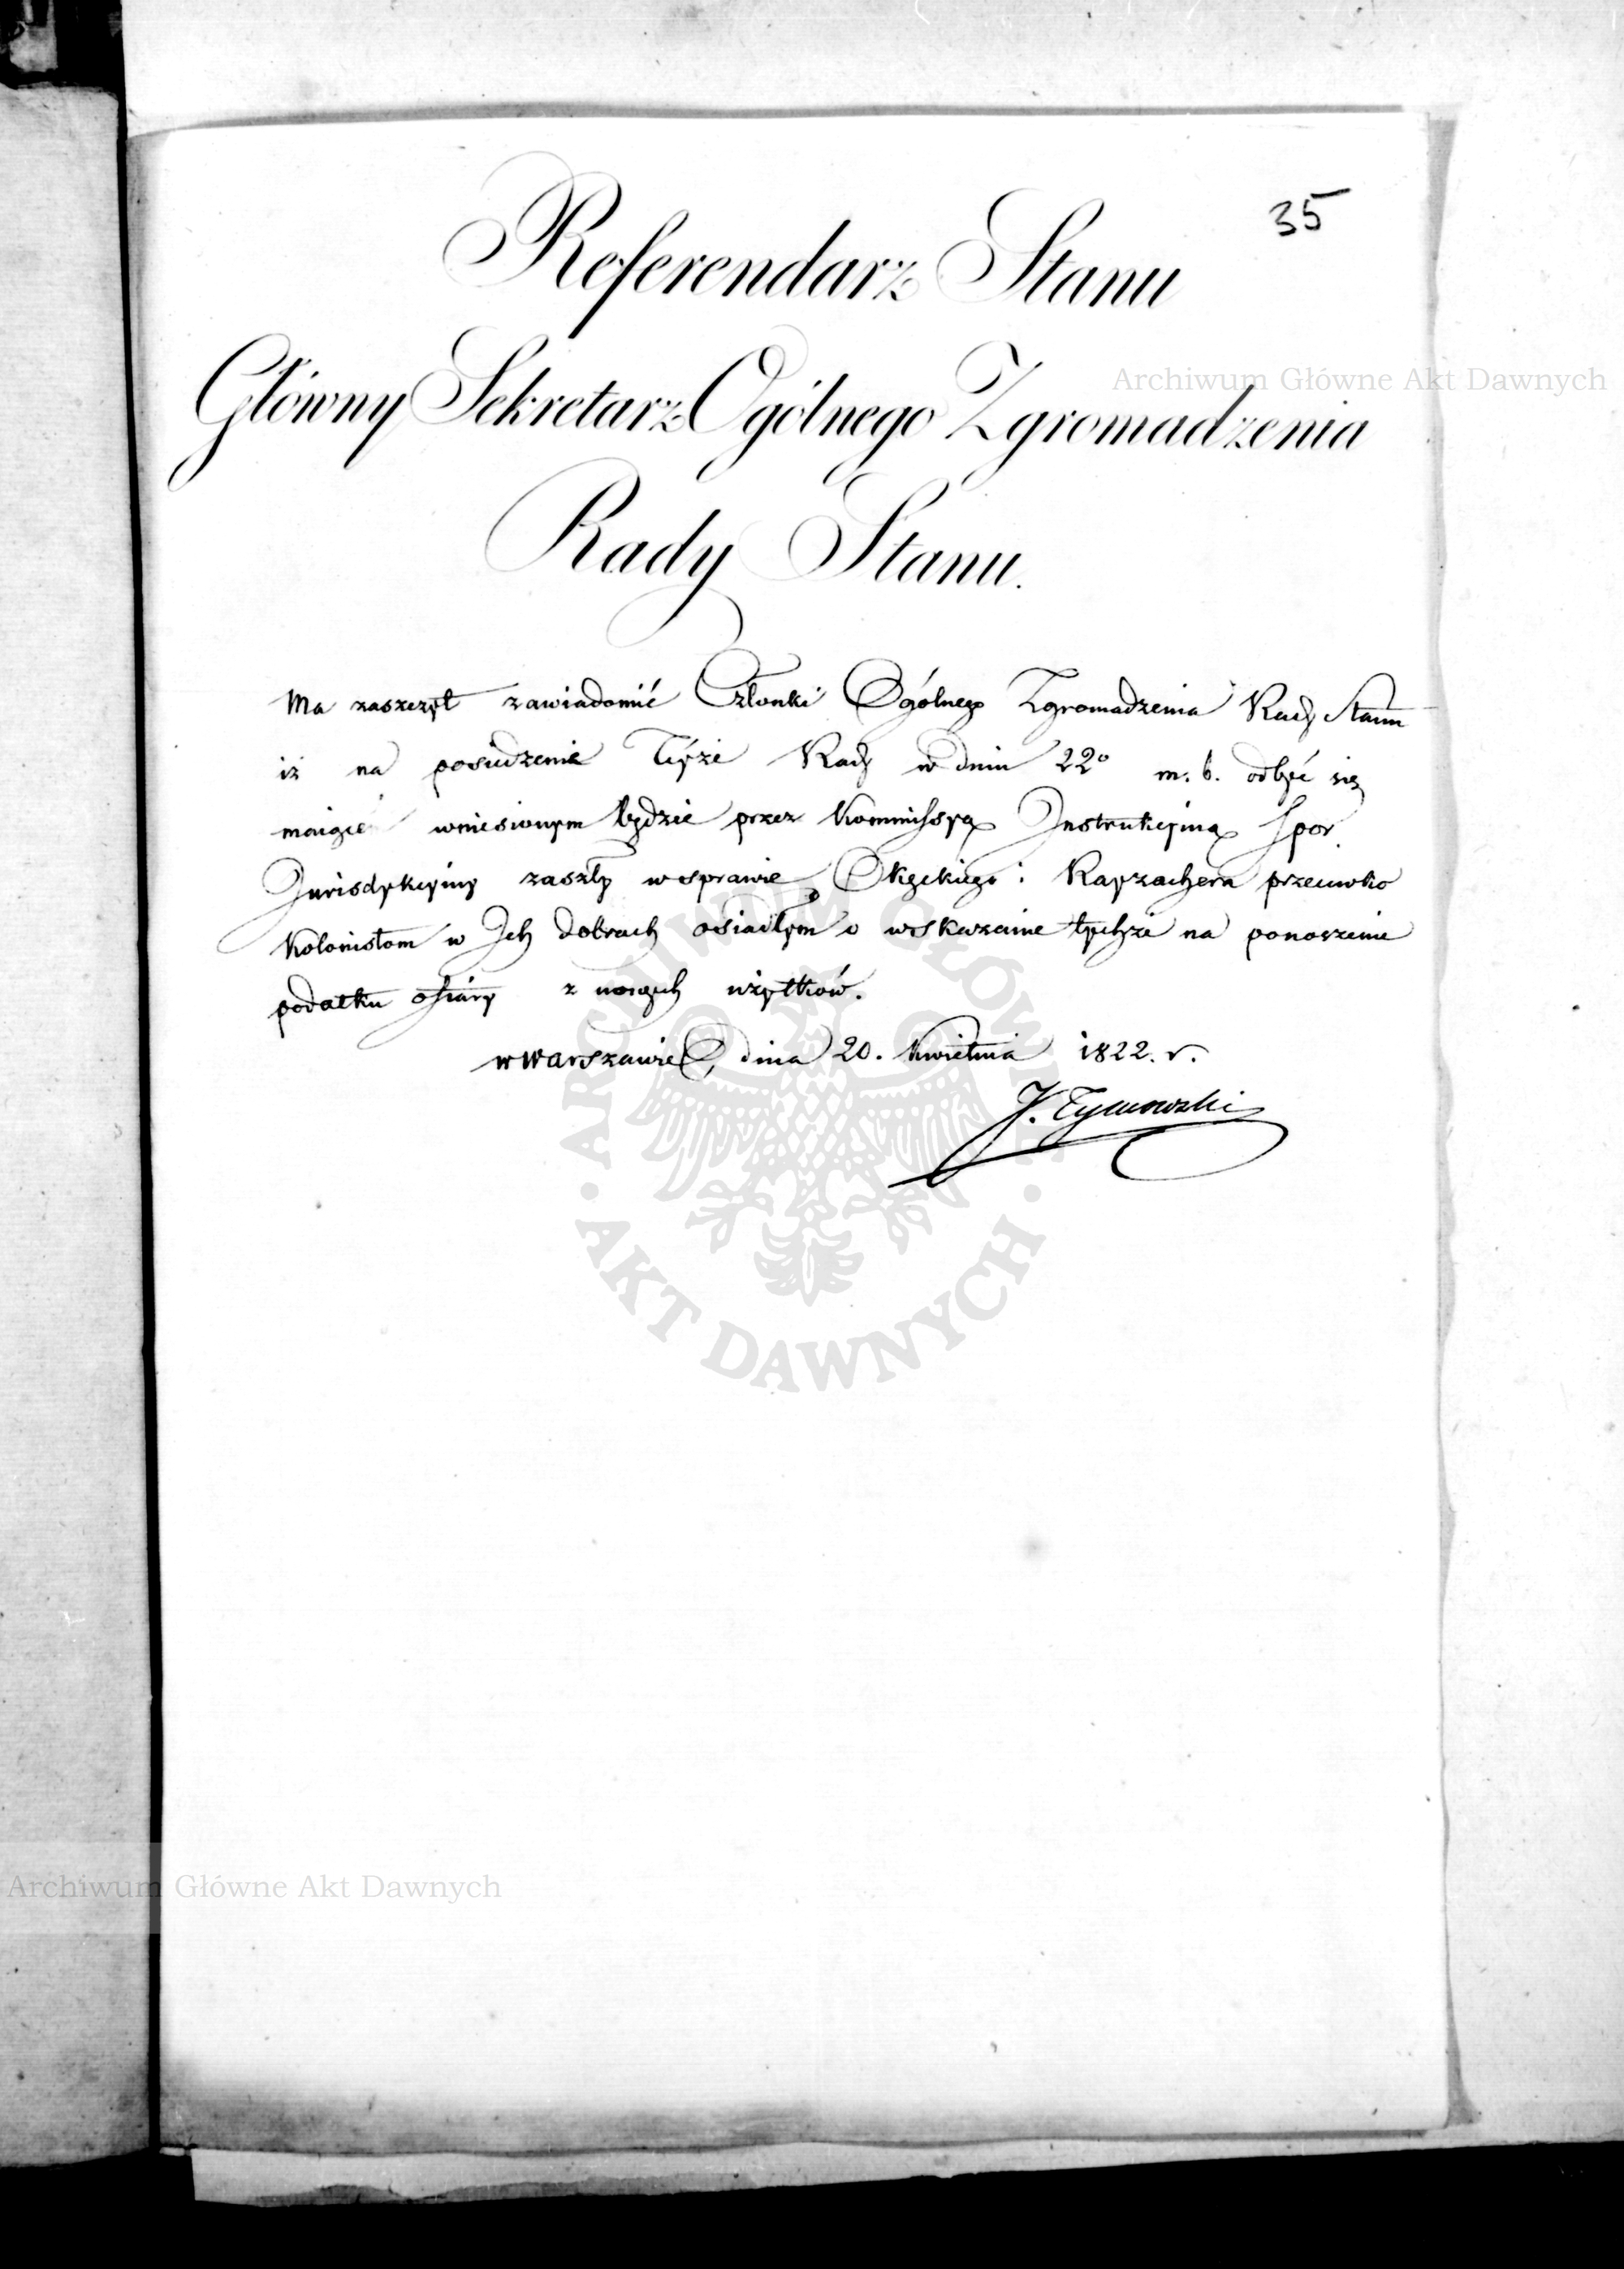 35
Referendarz Stanu
Główny Sekretarz Ogólnego Zgromadzenia
Rady Stanu.
Archiwum Główne Akt Dawnych
Ma zaszczyt zawiadomić Członki Ogólnego Zgromadzenia Rady Stanu
iż na posiedzenie Téyże Rady w dniu 22º m. b. odbyć się
maiące wniesionym będzie przez Kommissyą Instrukcyiną Spor
Jurisdykcyiny zaszły w sprawie Okęckiego i przeciwko
Kolonistom w Ich dobrach osiadłym o wskazanie tychże na ponoszenie
podatku ofiary z nowych użytków.
w Warszawie, dnia 20. Kwietnia 1822. r.
J. Tymowski
ARCHIWUM GŁÓWNE
AKT DAWNYCH
Archiwum Główne Akt Dawnych